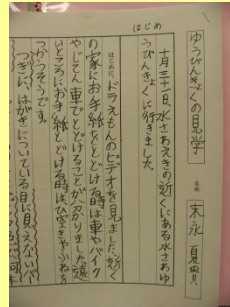 ゆうびんきょくの見学
名前 末永夏貴
はじめ
十月三十一日、水さわえきの近くにある水さわゆ
うびんきょくに行きました。
はじめに、ドラえもんのビデオを見ました。近く
の家にお手紙などとどける時は車やバイク
やじてん車でとどけることが分かりました。遠
いところにお手紙とどける時は、ひこうきやふねを
つかうそうです。
つぎに、はがきについている目に見えないバー